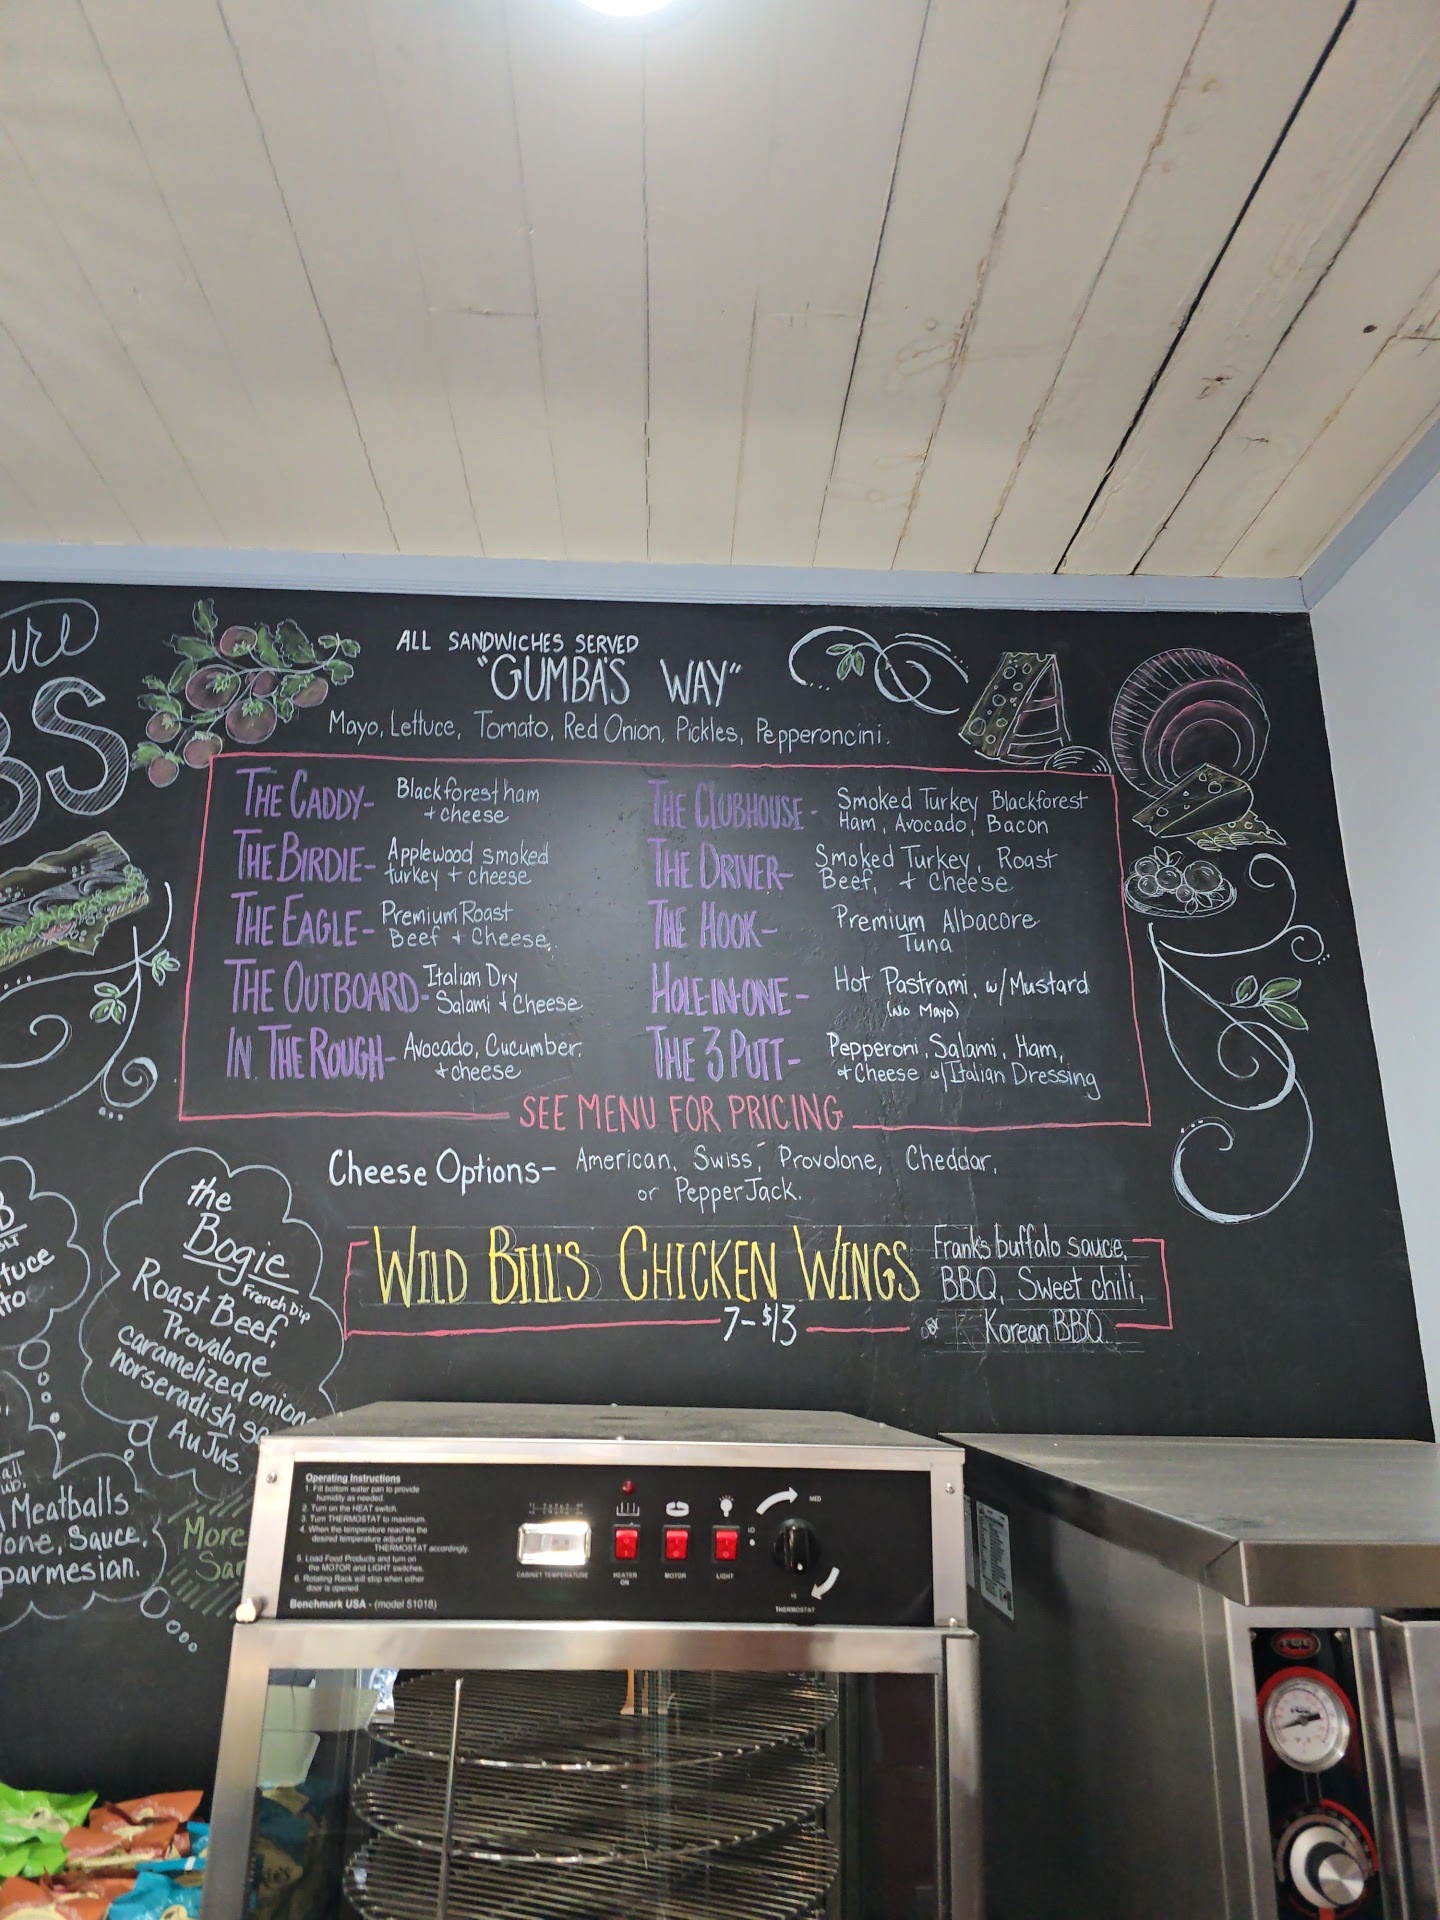 ALL SANDWICHES SERVED
"GUMBA'S WAY"
Mayo, Lettuce, Tomato, Red Onion, Pickles, Pepperoncini.
THE CADDY- Blackforest ham
+ cheese
THE BIRDIE- Applewood smoked
turkey + cheese
THE EAGLE- Premium Roast
Beef + Cheese
THE OUTBOARD- Italian Dry
Salami + Cheese
IN THE ROUGH- Avocado, Cucumber,
+ cheese
THE CLUBHOUSE- Smoked Turkey Blackforest
Ham, Avocado, Bacon
THE DRIVER- Smoked Turkey, Roast
Beef, + Cheese
THE HOOK- Premium Albacore
Tuna
HOLE-IN-ONE- Hot Pastrami, w/Mustard
(No Mayo)
THE 3 PUTT- Pepperoni, Salami, Ham,
+ Cheese w/Italian Dressing
SEE MENU FOR PRICING
Cheese Options- American, Swiss, Provolone, Cheddar,
or PepperJack.
WILD BILL'S CHICKEN WINGS
7-$13
Frank's buffalo sauce,
BBQ, Sweet chili,
Korean BBQ
the
Bogie
French Dip
Roast Beef,
Provalone
caramelized onion
norseradish
Au Jus.
Meatballs
Sauce,
parmesian.
More
Operating Instructions
1. Fill bottom water pan to provide
humidity as needed.
2. Turn on the HEAT switch.
3. Turn THERMOSTAT to maximum.
4. When the temperature reaches the
desired temperature adjust the
THERMOSTAT accordingly.
5. Load Food Products and turn on
the MOTOR and LIGHT switches.
6. Rotating Rack will stop when either
door is opened.
Benchmark USA - (model 51018)
CABINET TEMPERATURE
HEATER
ON
MOTOR
LIGHT
LO
MED
HI
THERMOSTAT